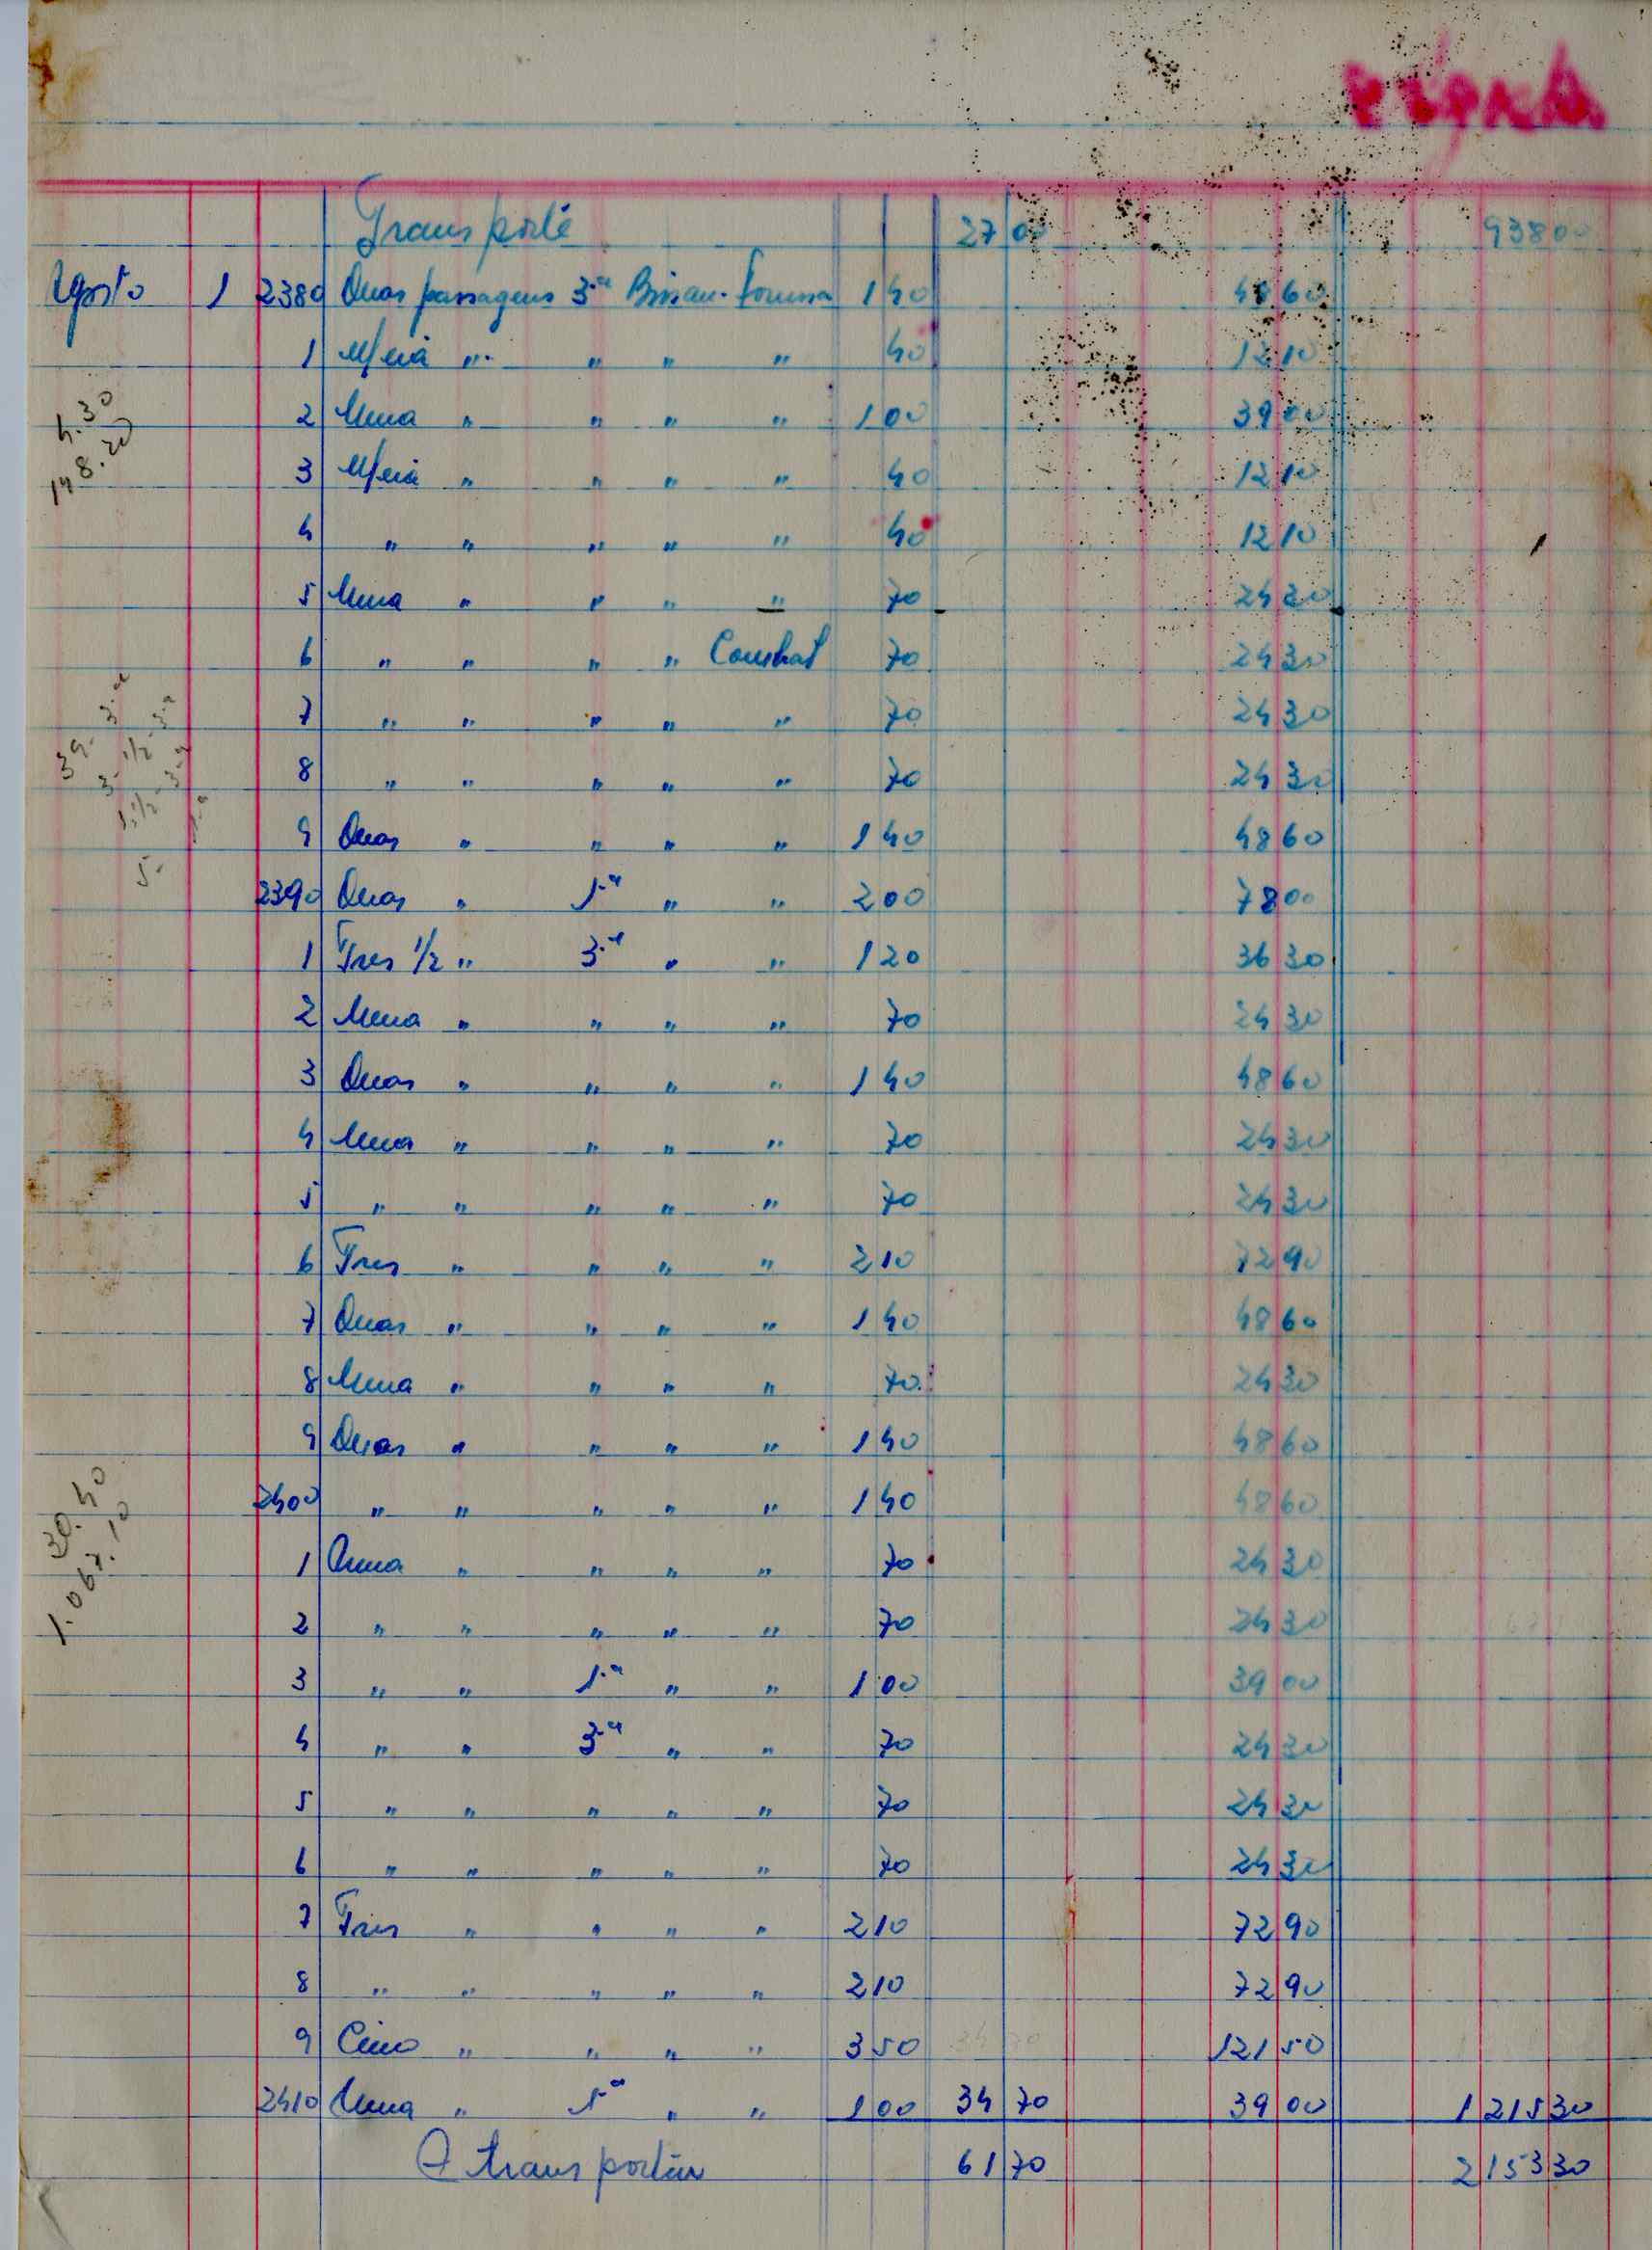 Transporte 27 00 93800
Agosto 1 2380 Duas passagens 3.ª Bissau- 140 4860
1 Meia " " " " 40 1210
2 Uma " " " " 100 3900
3 Meia " " " " 40 1210
4 " " " " " 40 1210
5 Uma " " " " 70 2430
6 " " " " 70 2430
7 " " " " " 70 2430
8 " " " " " 70 2430
9 Duas " " " " 140 4860
2390 Duas " 1.ª " " 200 7800
1 Tres 1/2 " 3.ª " " 120 3630
2 Uma " " " " 70 2430
3 Duas " " " " 140 4860
4 Uma " " " " 70 2430
5 " " " " " 70 2430
6 Tres " " " " 210 7290
7 Duas " " " " 140 4860
8 Uma " " " " 70 2430
9 Duas " " " " 140 4860
2400 " " " " " 140 4860
1 Uma " " " " 70 2430
2 " " " " " 70 2430
3 " " 1.ª " " 100 3900
4 " " 3.ª " " 70 2430
5 " " " " " 70 2430
6 " " " " " 70 2430
7 Tres " " " " 210 7290
8 " " " " " 210 7290
9 Cinco " " " " 350 12150
2410 Uma " 1ª " " 100 34 70 3900 121530
A transportar 61 70 215330
4.30
148.20
39- 3.ª
3- 1/2 - 3.ª
5-
30.40
1.067.10